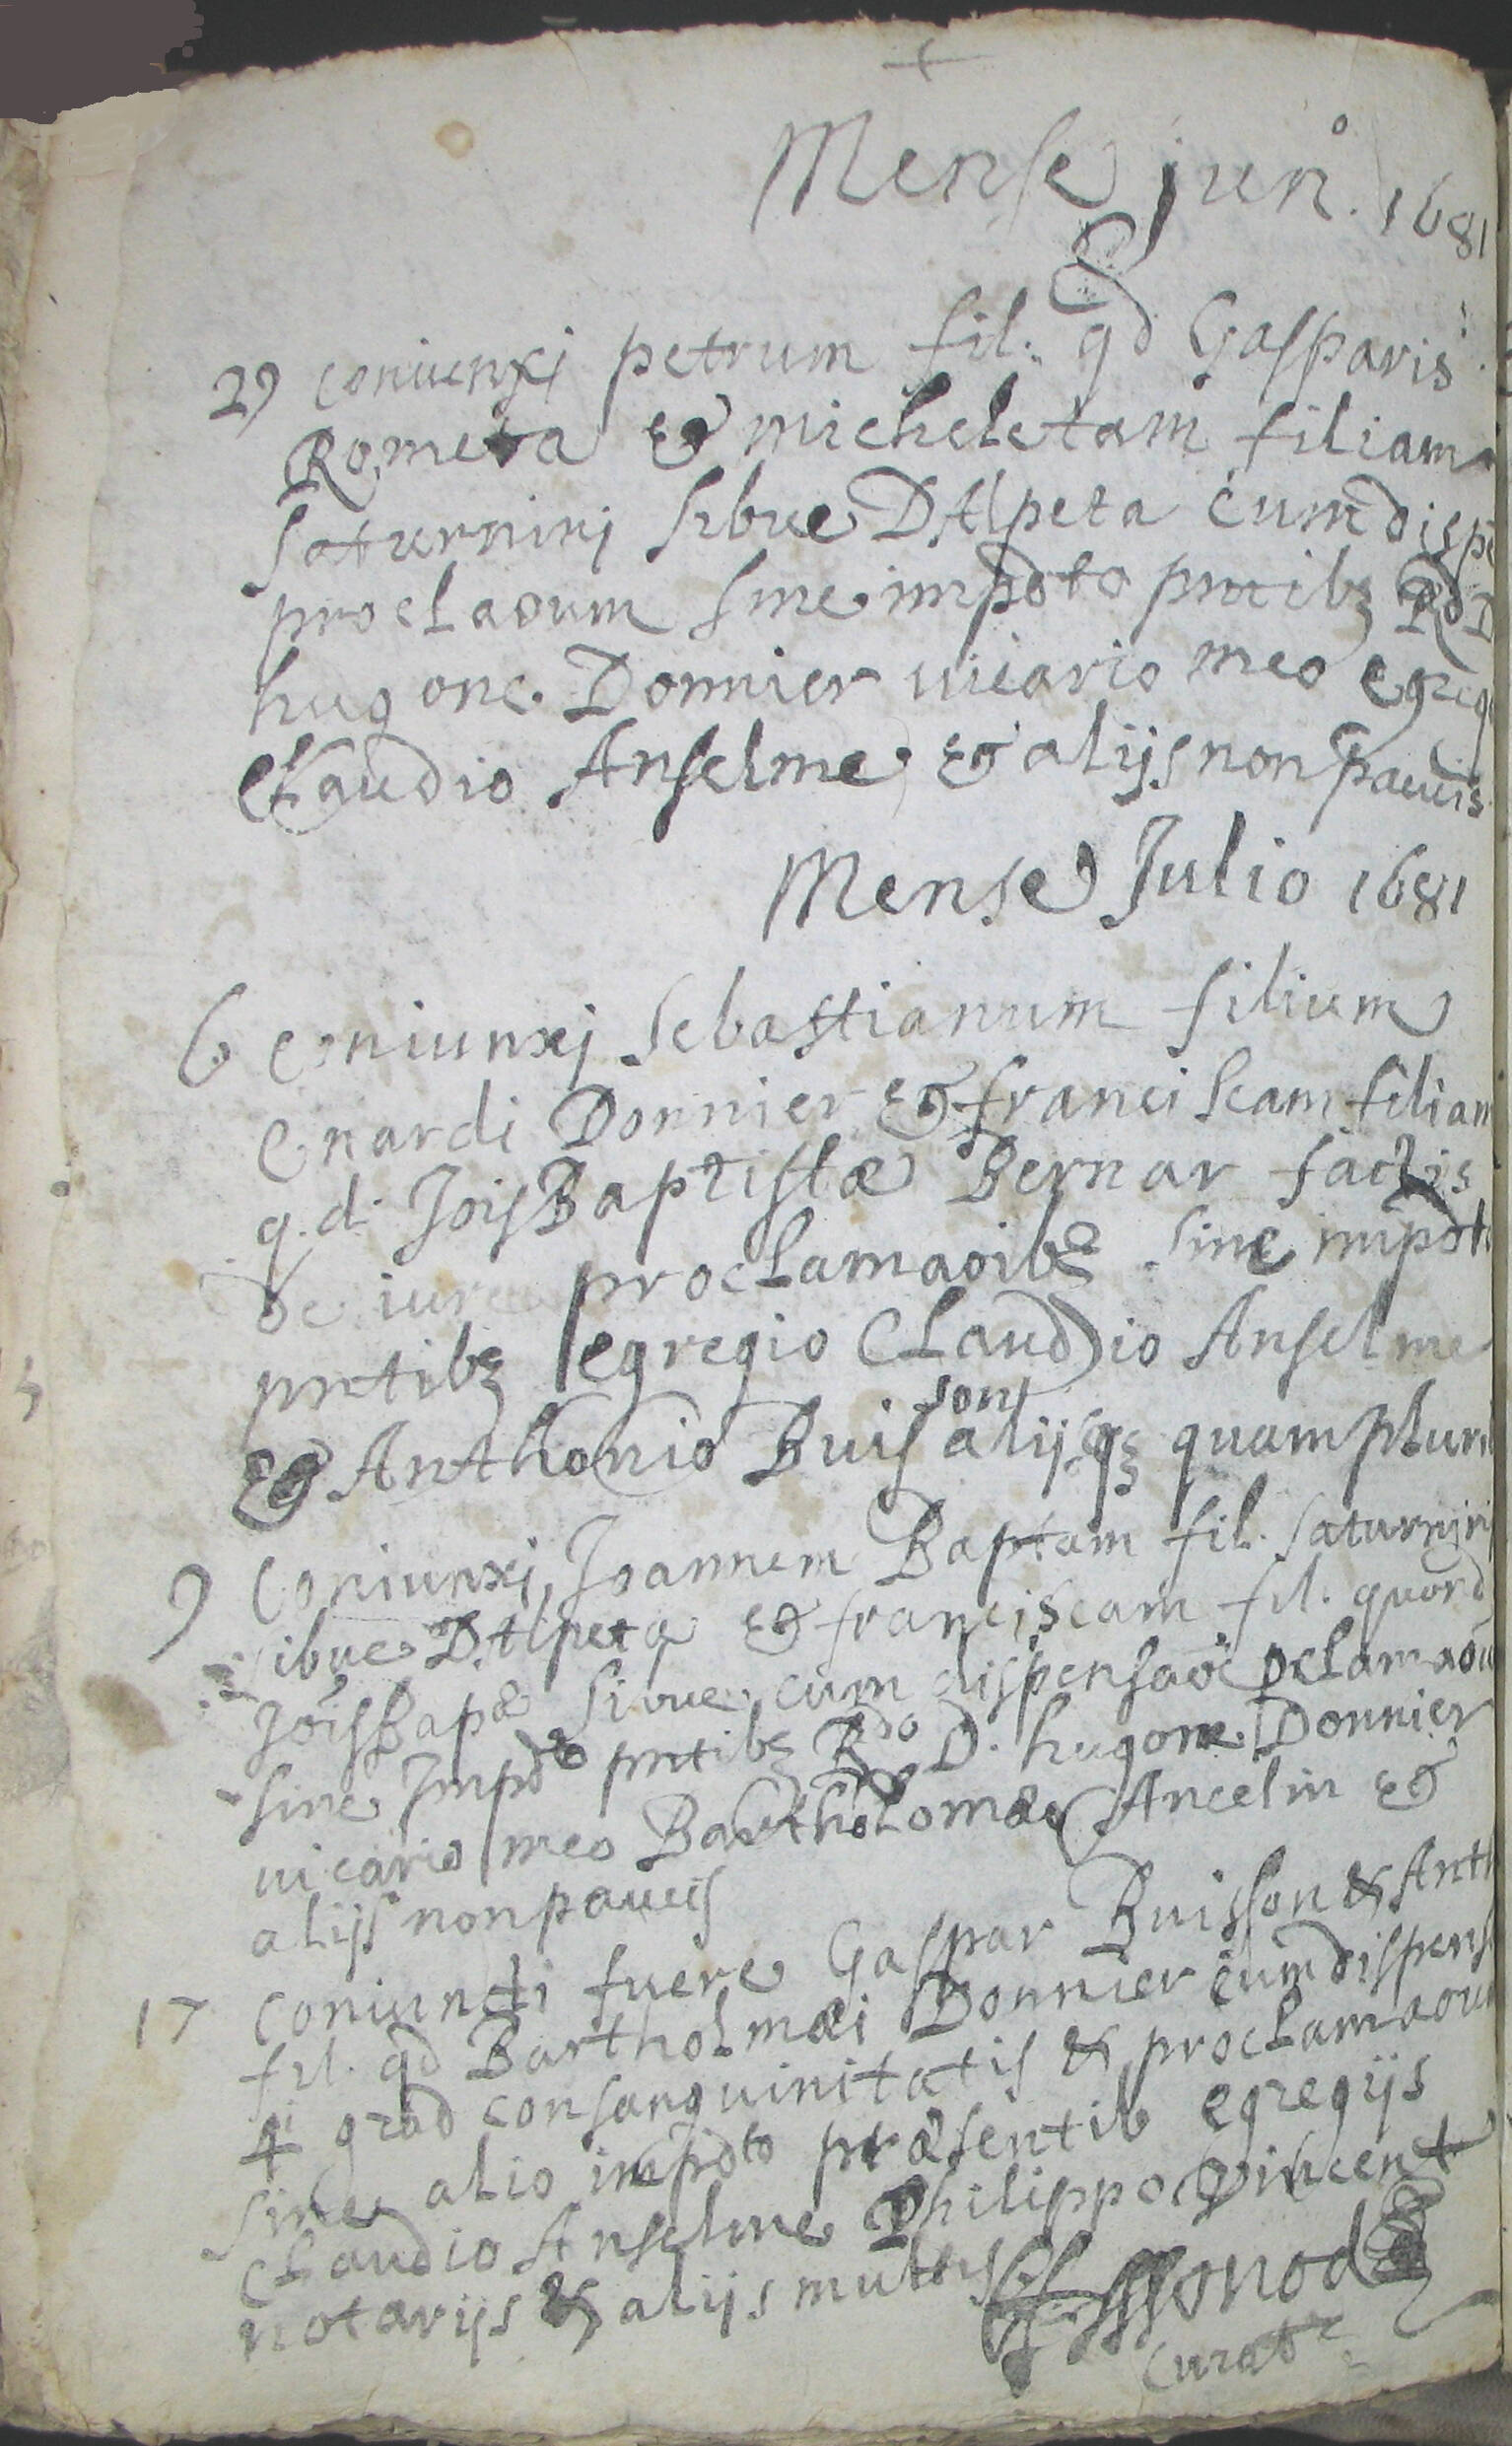 Mense jun.º 1681
29 coniunxi petrum fil. qd Gasparis
Rometa & micheletam filiam
Saturnini sibue D.Alpeta cum dispe
proclaoum sine impdto pntibz Rd D
hugone Donnier uicario meo egreg
Claudio Anselme & alijs non paucis
Mense Julio 1681
6 coniunxj Sebastianum filium
enardi Donnier & franciscam filiam
q.d. Jois Baptistæ Bernar factis
de iure proclamaoibz sine impdt
pntibz egregio Claudio Anselme
& Anthonio Buisson alijsqz quamplur
9 Coniunxj Joannem Baptam fil. Saturnini
sibue D.Alpeta & franciscam fil. quond
Jois Bapæ Siuue cum dispensaoe pclamaou
sine Impdto pntibz Rdo D. hugone Donnier
uicario meo Bartholomæo Ancelin &
alijs non paucis
17 coniuncti fuere Gaspar Buisson & Anth
fil. qd Bartholmæi Donnier cum dispens
4i grad consanguinitatis & proclamaoum
sine alio impdto præsentib egregijs
Claudio Anselme Philippo Vincent
notarijs & alijs multis
Curat